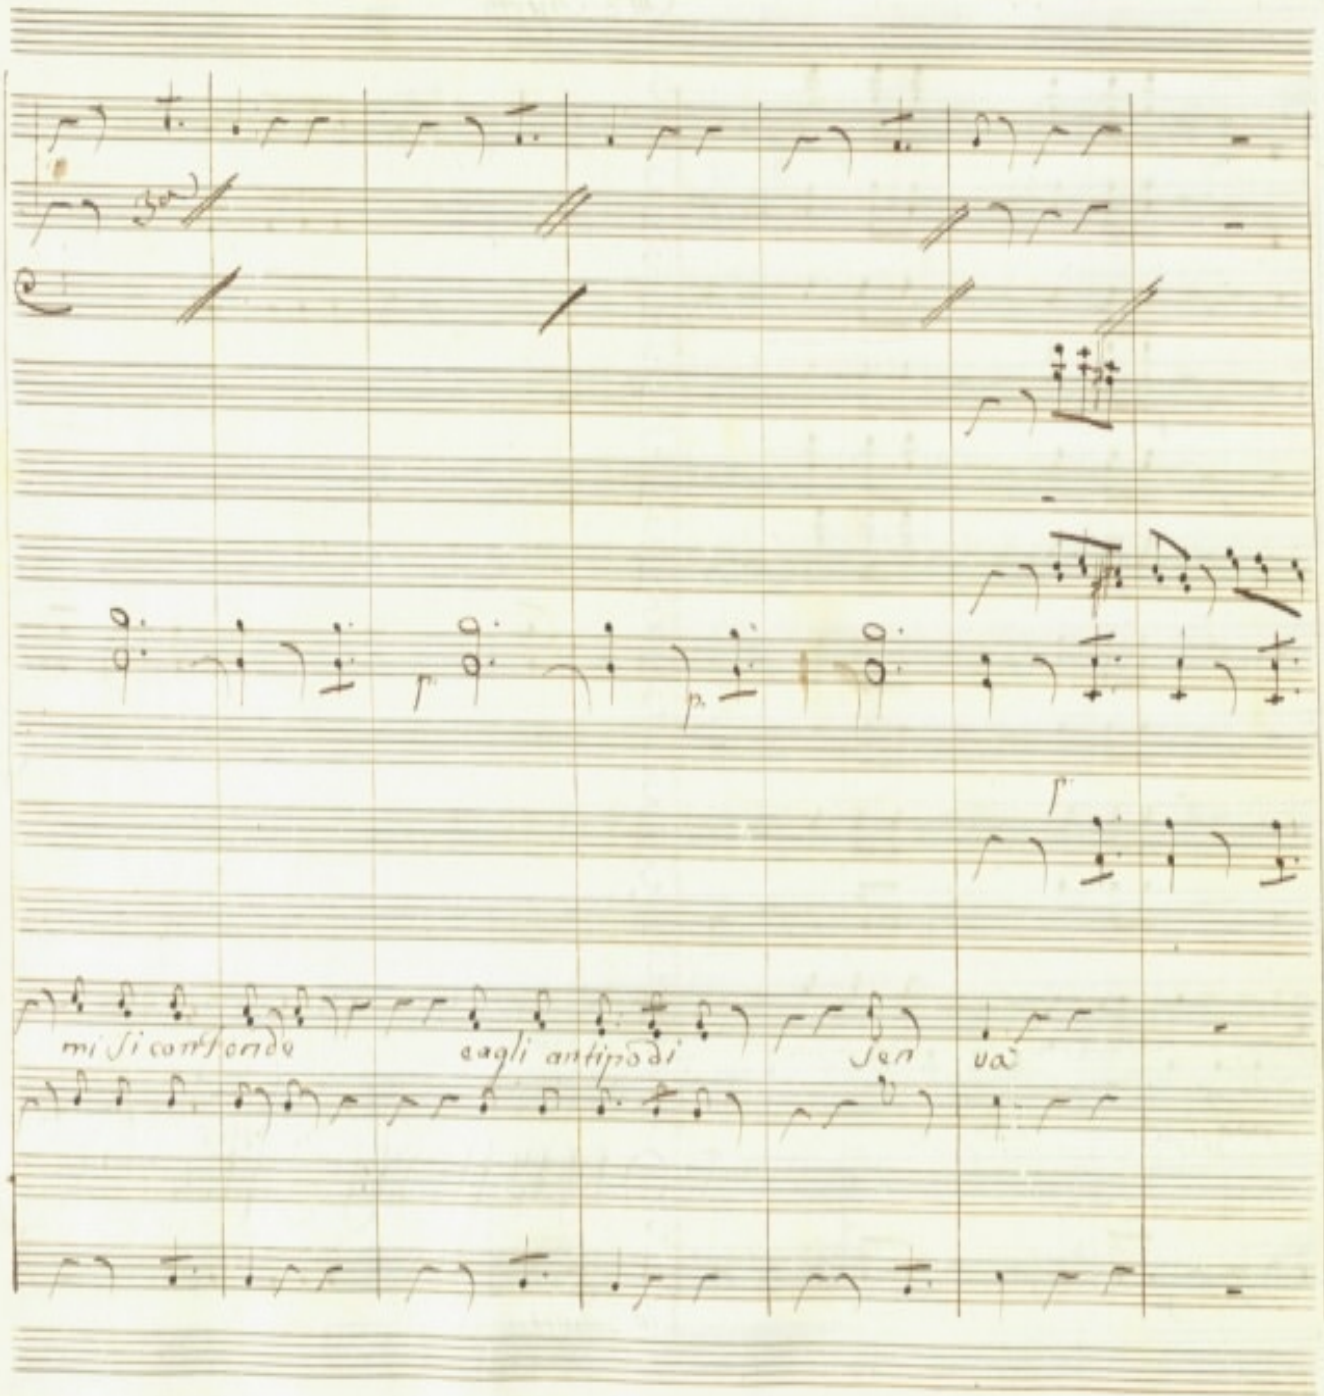 p.
p.
p
mi si confonde e agli antipodi sen và